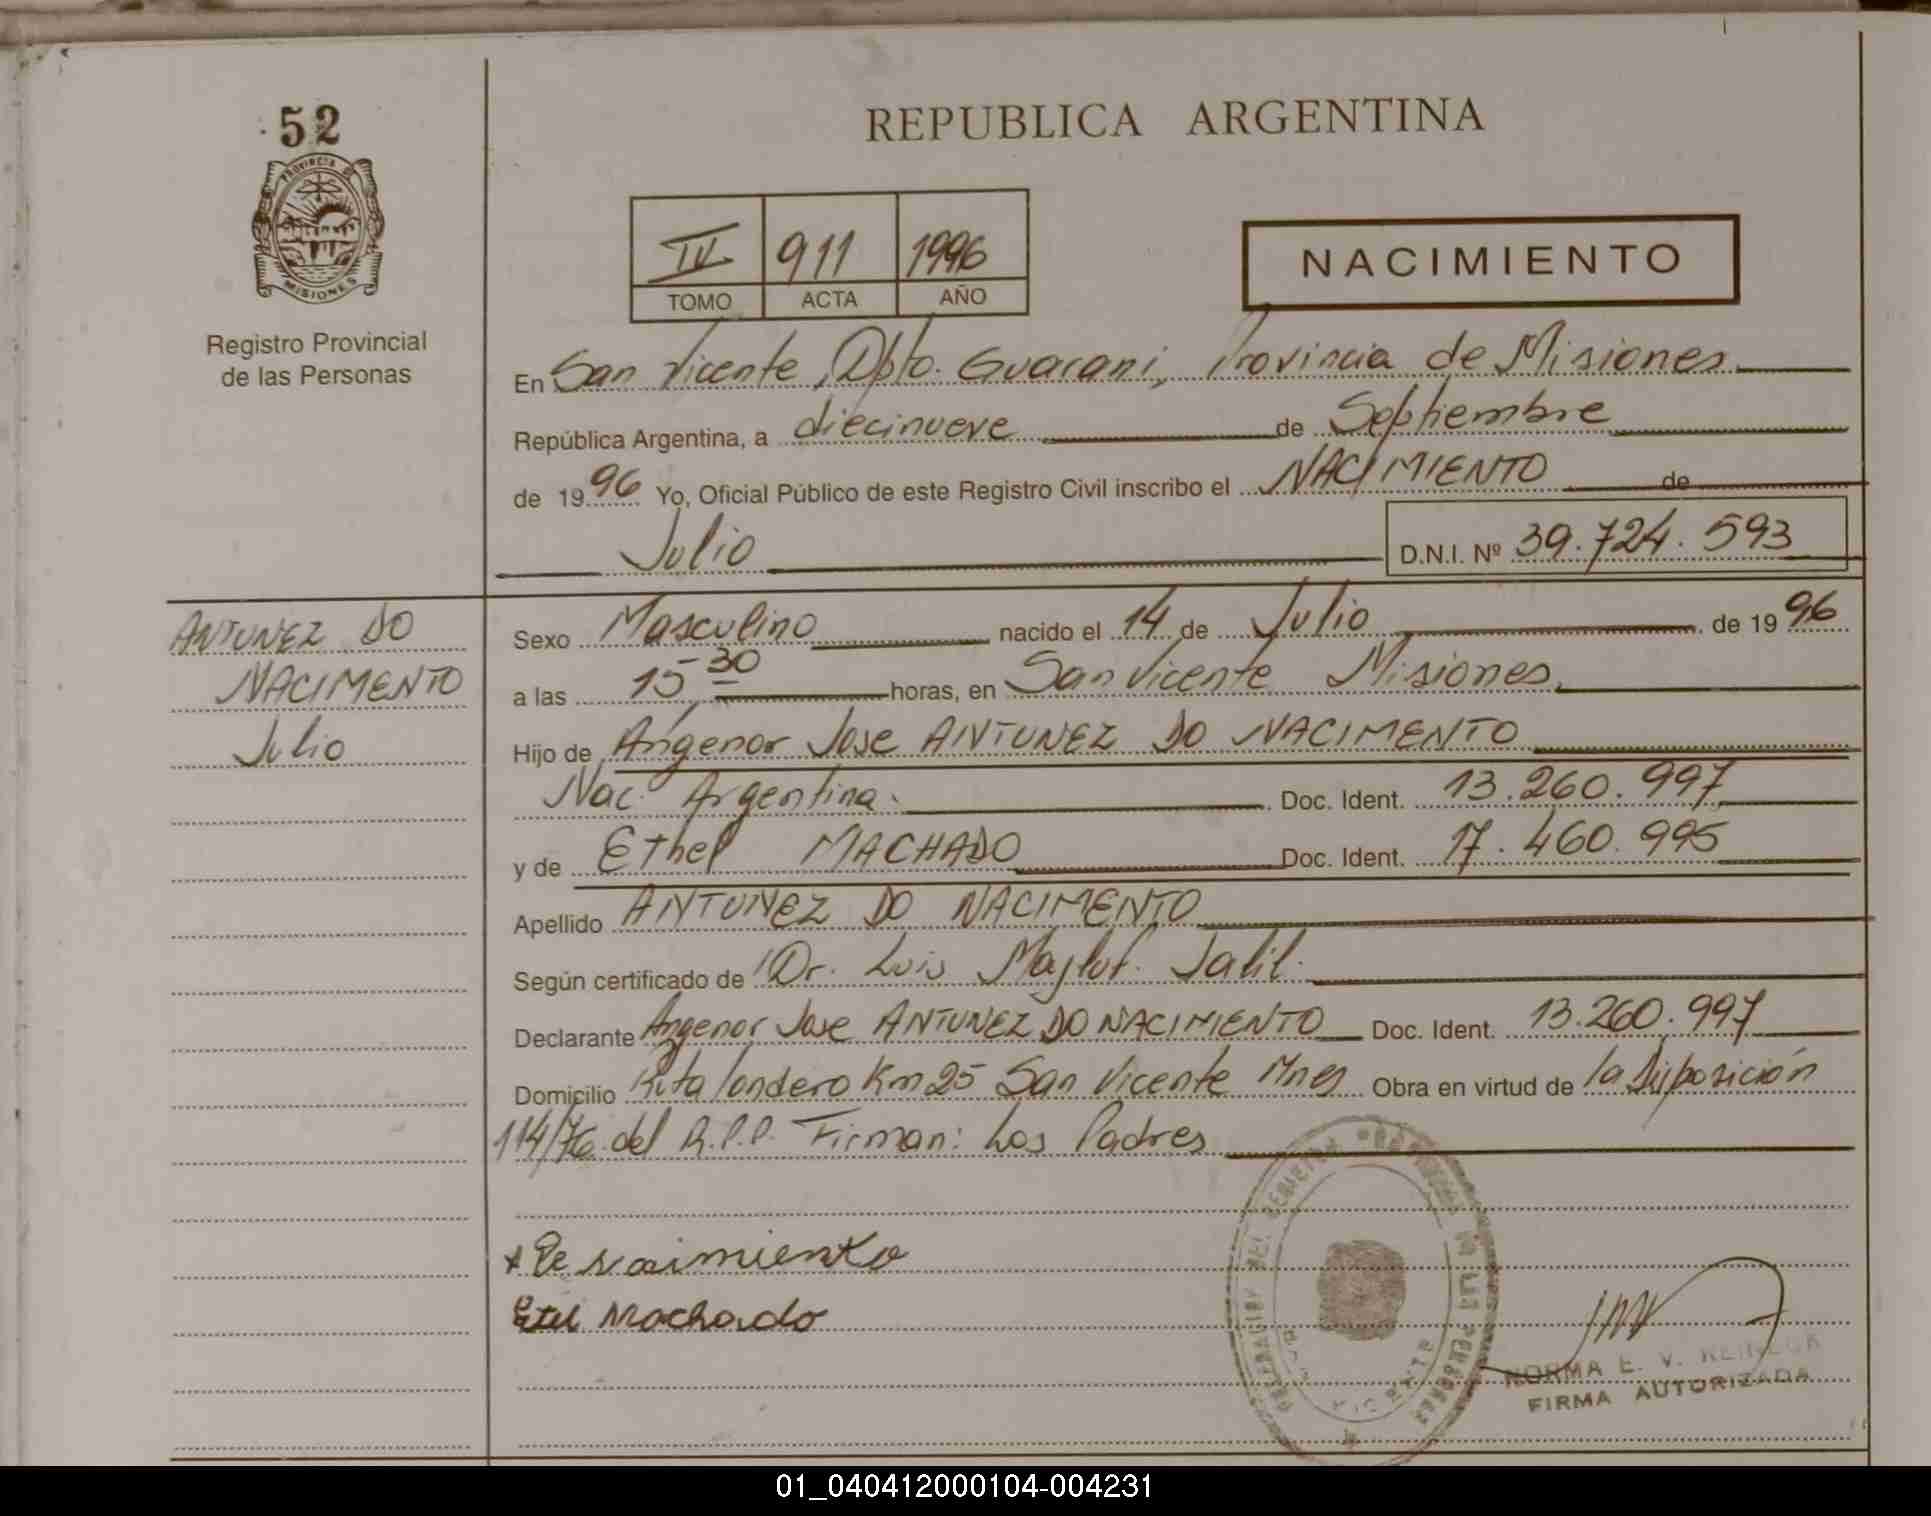 52
PROVINCIA DE
MISIONES
Registro Provincial
de las Personas
REPUBLICA ARGENTINA
IV 911 1996
TOMO ACTA AÑO
NACIMIENTO
En San Vicente, Dpto. Guarani, Provincia de Misiones
República Argentina, a diecinueve de Septiembre
de 1996 Yo, Oficial Público de este Registro Civil inscribo el NACIMIENTO de
Julio D.N.I. Nº 39.724.593
ANTUNEZ DO
NACIMENTO
Julio
Sexo Masculino nacido el 14 de Julio de 1996
a las 15,30 horas, en San Vicente Misiones
Hijo de Angenor Jose ANTUNEZ DO NACIMENTO
Nac. Argentina. Doc. Ident. 13.260.997
y de Ethel MACHADO Doc. Ident. 17.460.995
Apellido ANTUNEZ DO NACIMENTO
Según certificado de Dr. Luis Jalil.
Declarante Angenor Jose ANTUNEZ DO NACIMIENTO Doc. Ident. 13.260.997
Domicilio Km 25 San Vicente Mnes Obra en virtud de la Disposición
114/76 del R.P.P. Firman: Los Padres
Machado
NORMA E. V.
FIRMA AUTORIZADA
01_040412000104-004231